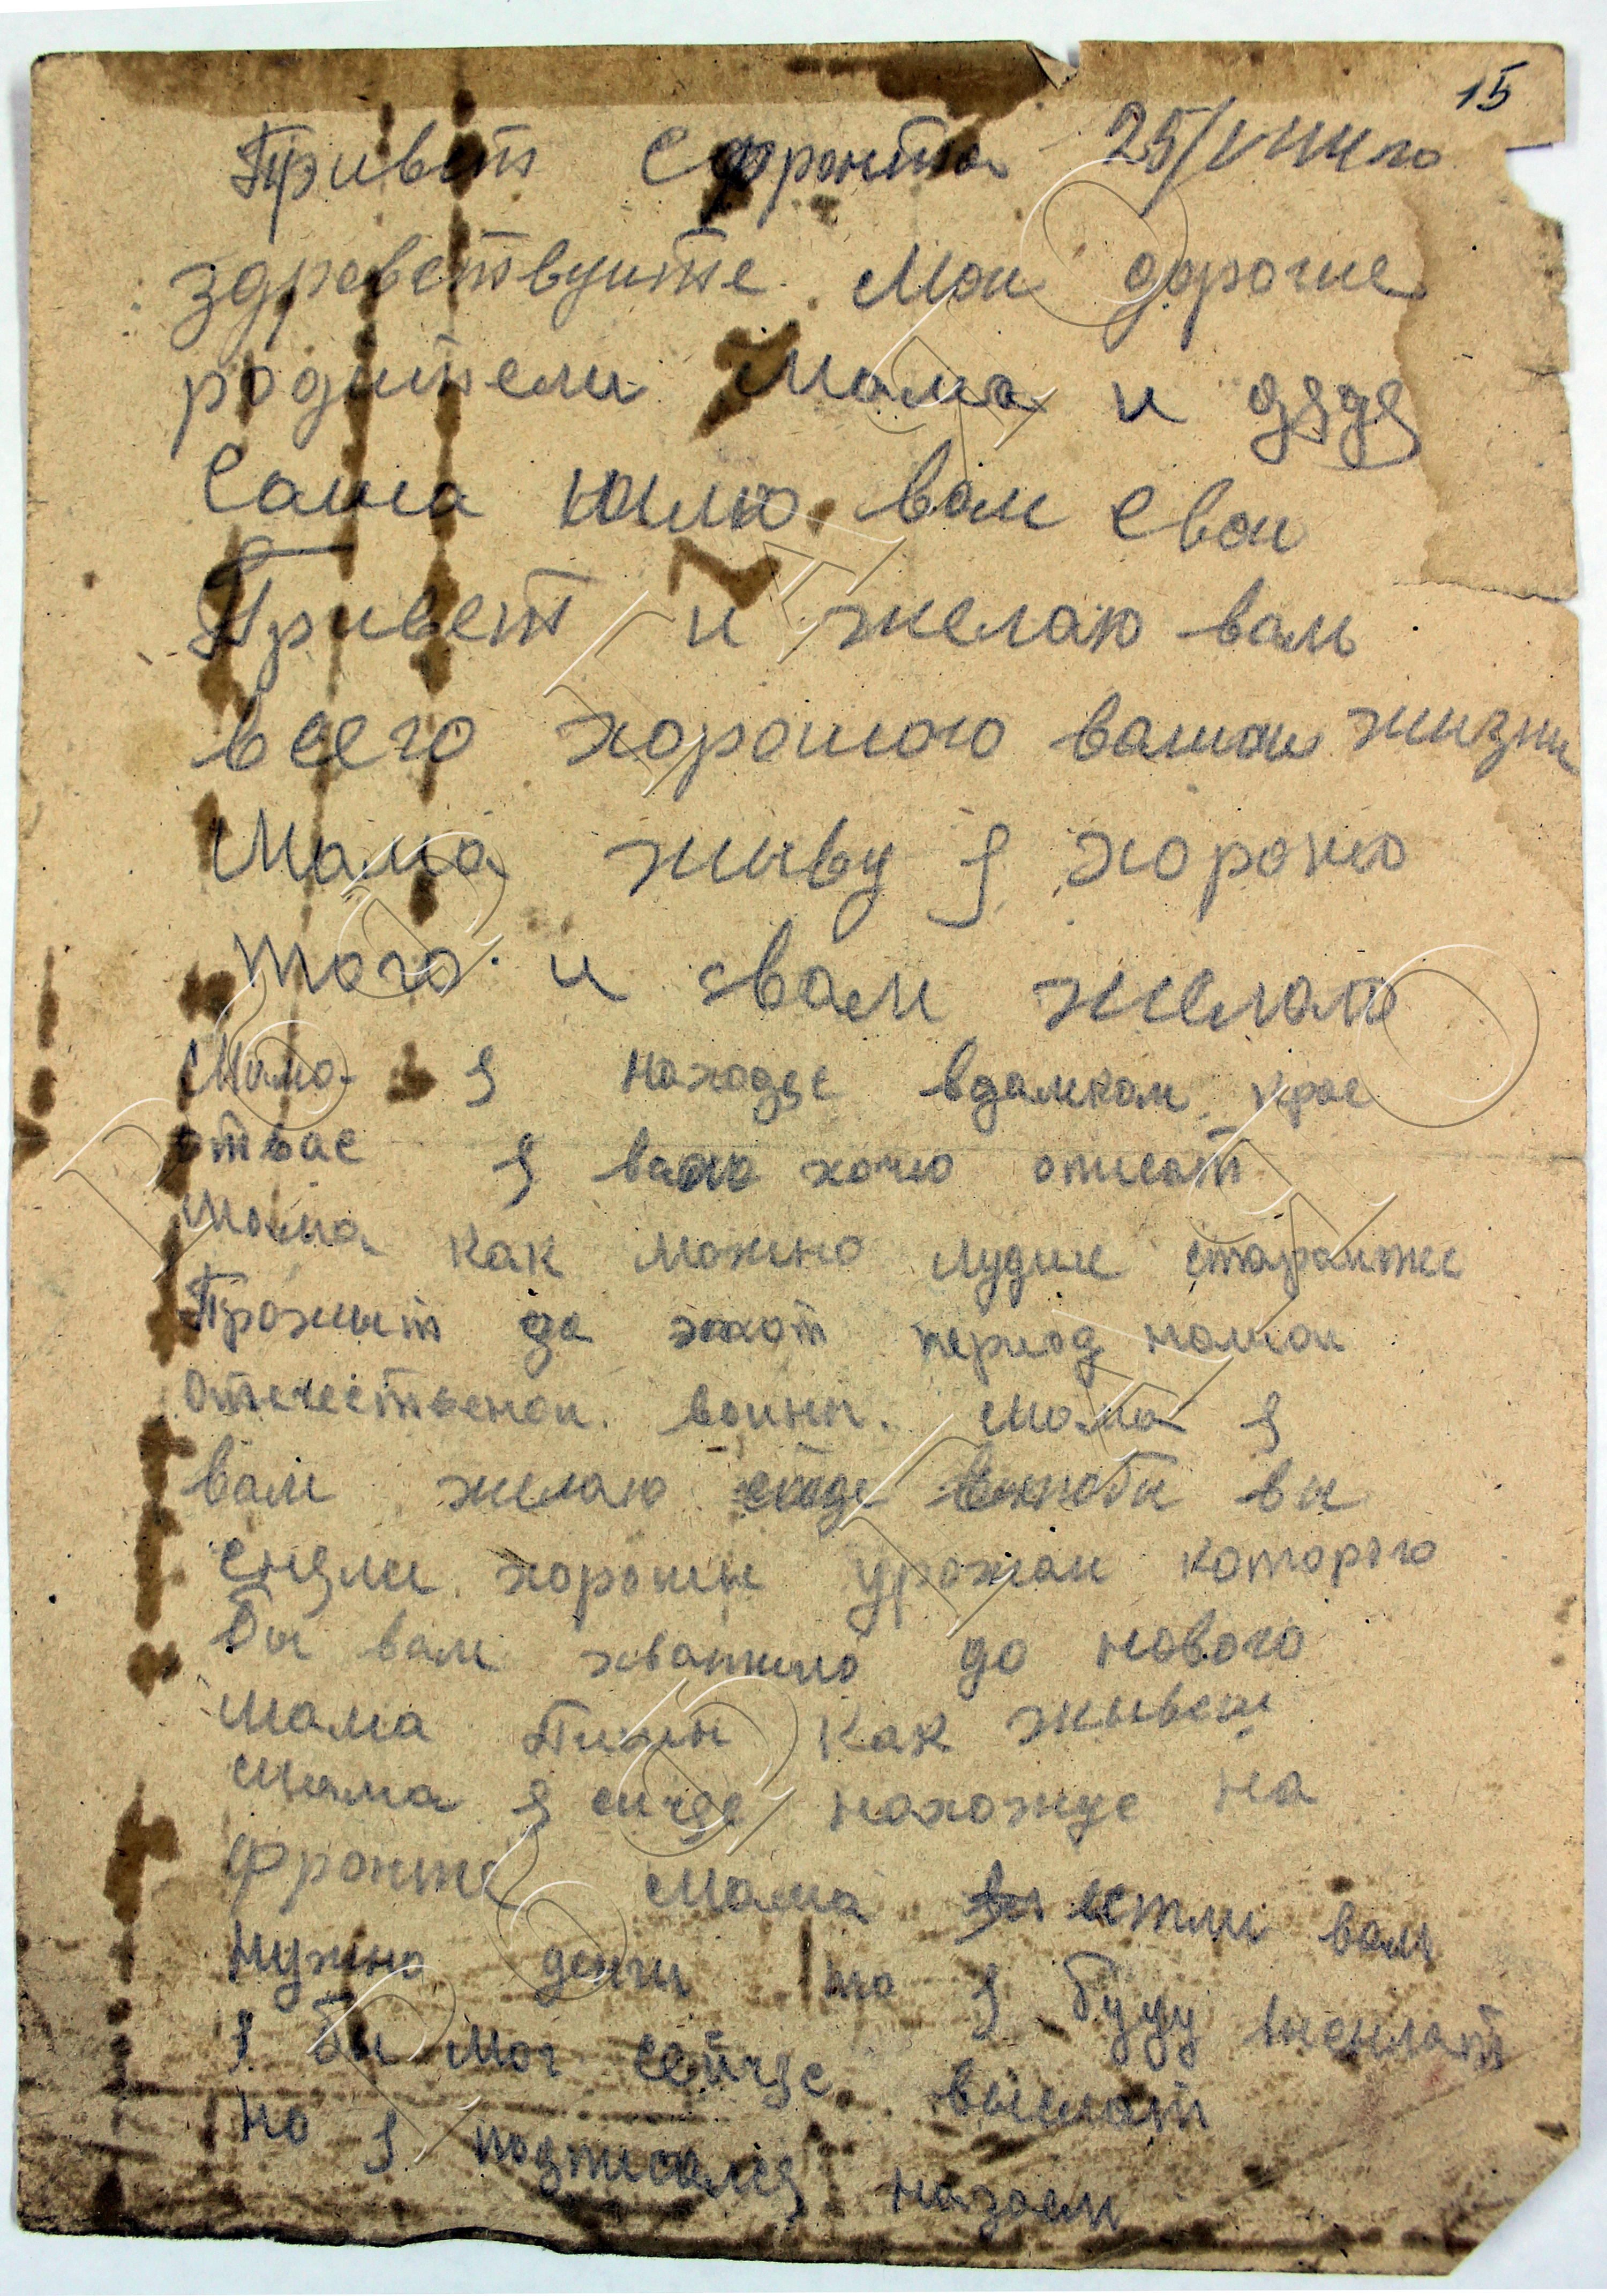 15
Привет С фронта 25/V 44 го
здравствуите Мои дорогие
родители Мама и дядя
Саша Шлю вам свои
Привет и желаю вам
всего хорошого вашои жизни
Мама живу я хорошо
того и вам желаю
Мама я находяс вдалком крае
отвас я вам хочю описат
Мама как можно лудше стараитже
Прожит до этот период нашои
отечественои воины. Мама я
вам желаю чтобы вы
сняли хорошы урожаи которого
бы вам хватило до нового
Мама Пишы как живеш
Мама я сичяс нахожус на
фронте Мама естли вам
нужно денги то я буду высылат
я бы мог сейчяс выслат
но я подписался назаем